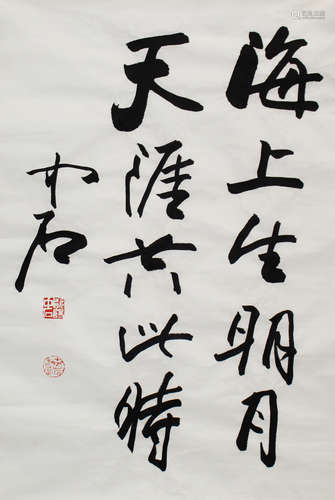 海上生明月
天涯共此时
中石